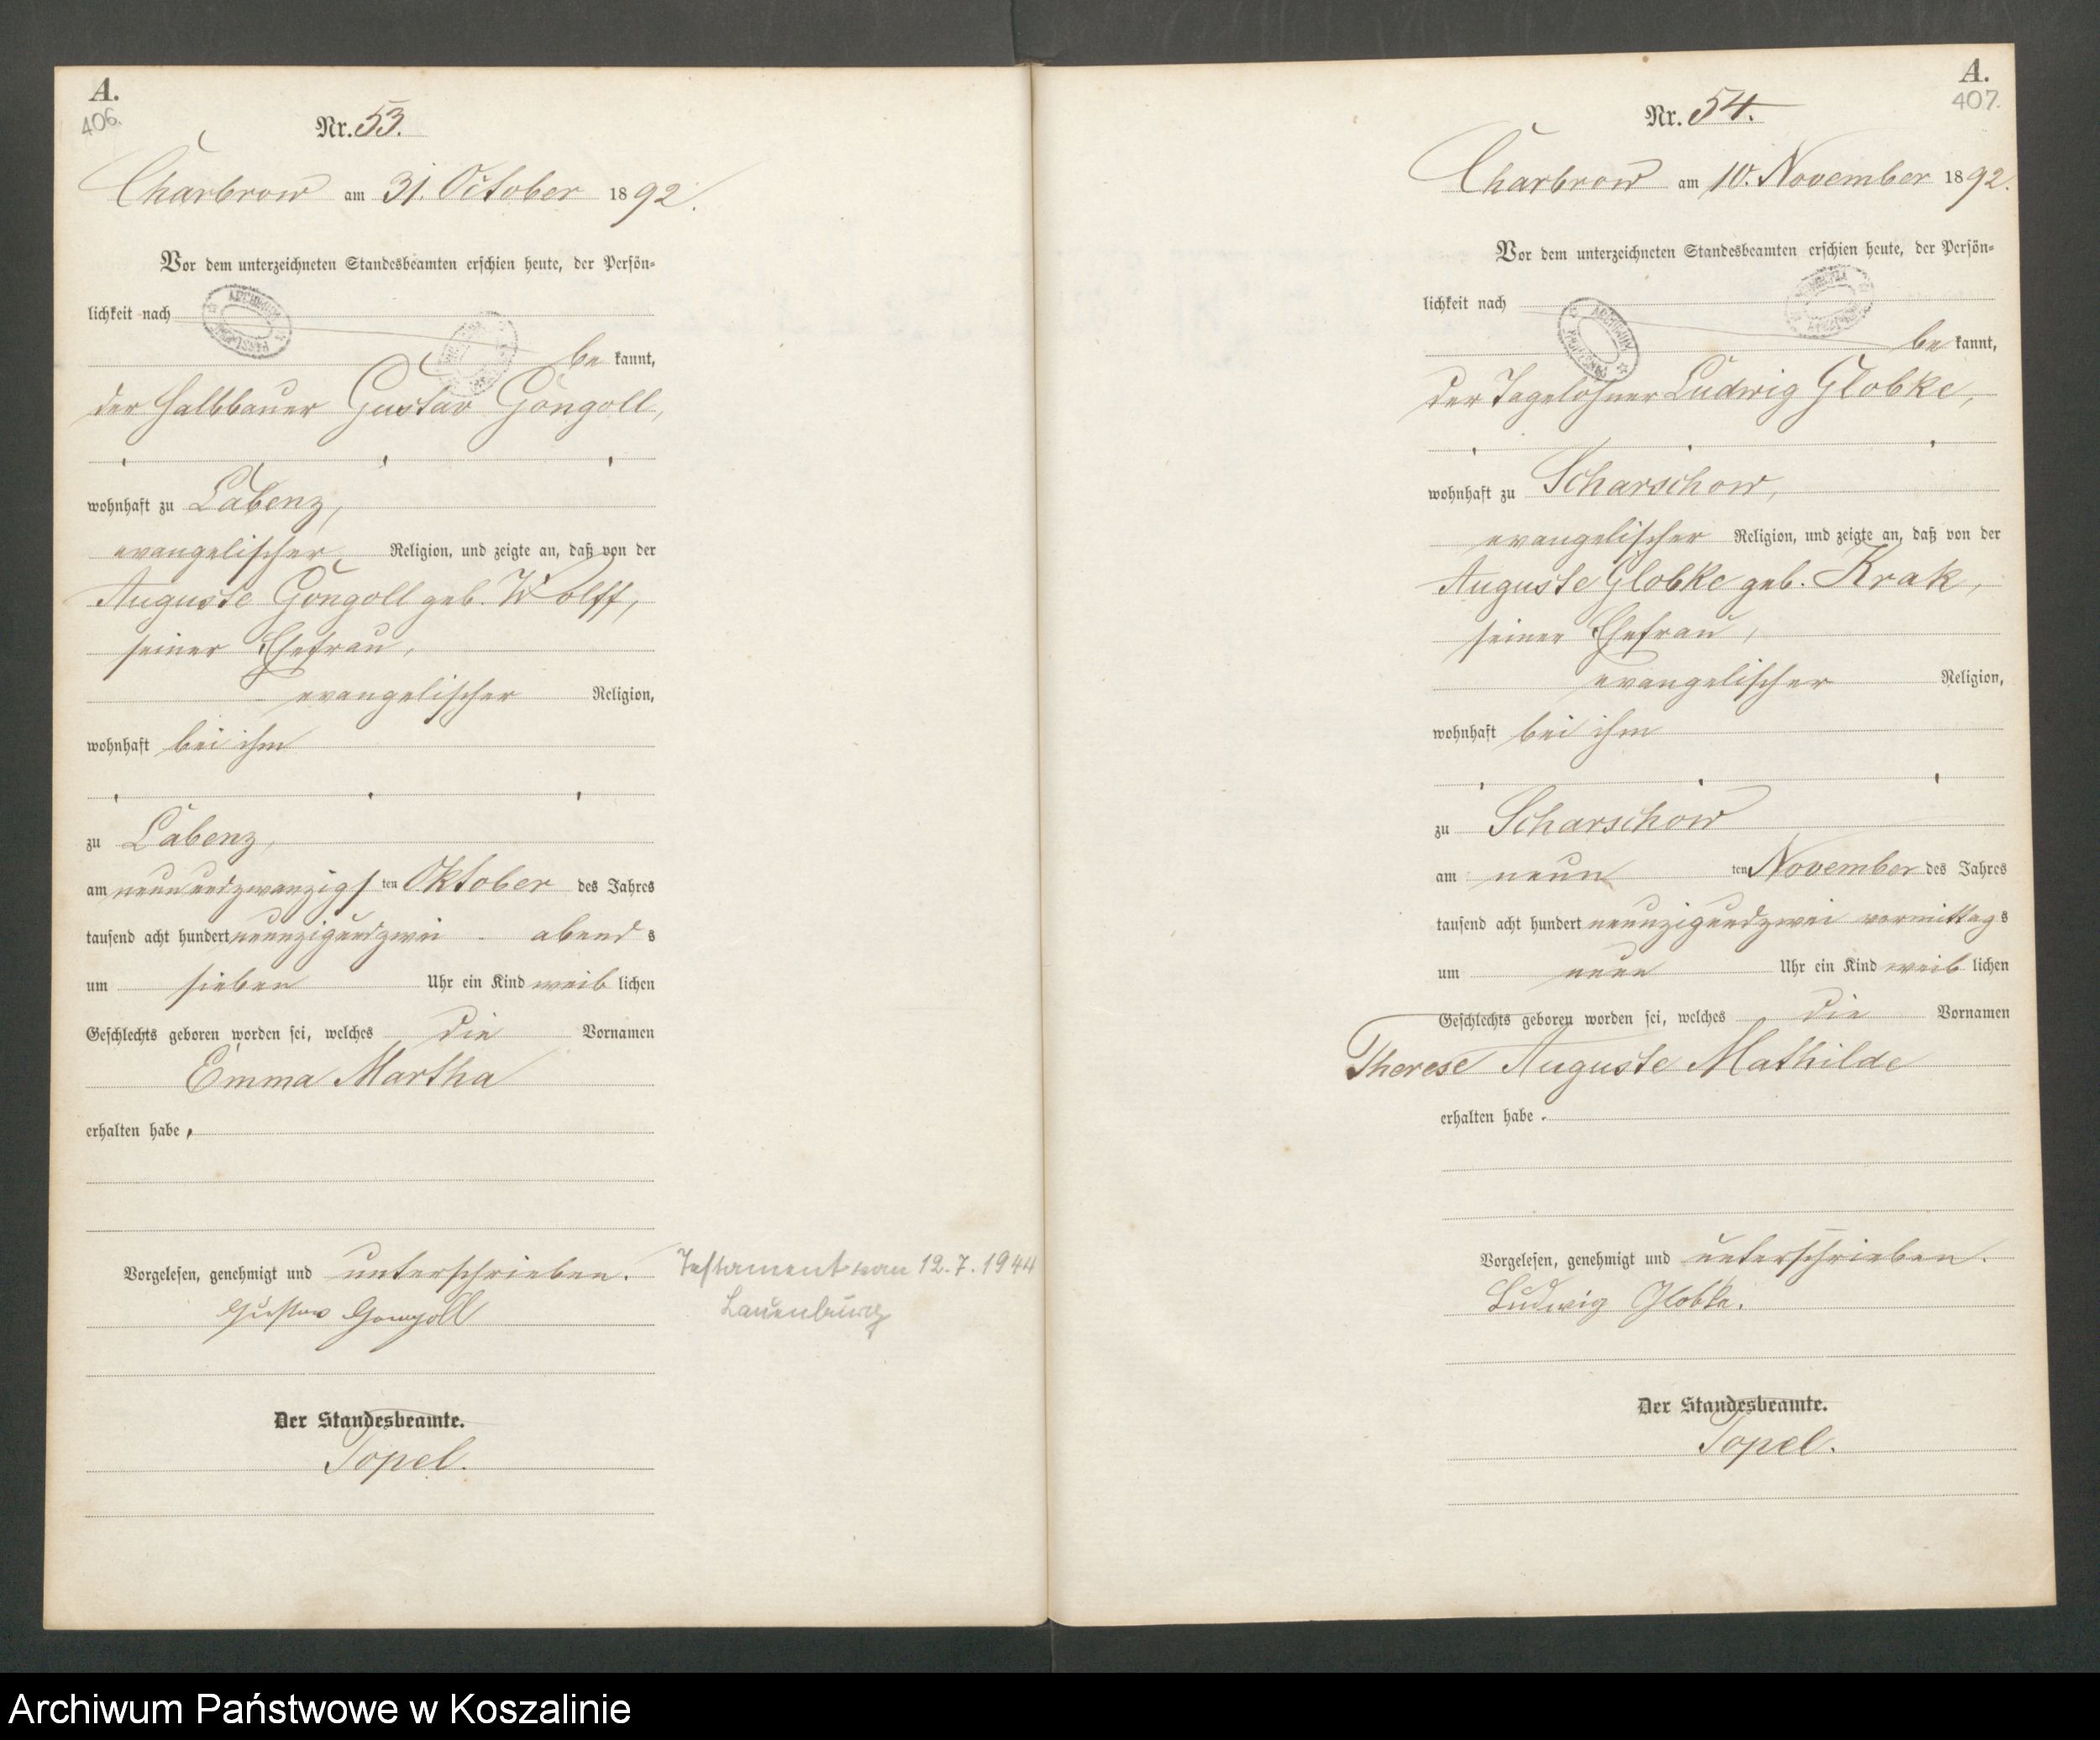 A.
406.
Nr. 53.
Charbrow am 31. October 1892.
Vor dem unterzeichneten Standesbeamten erschien heute, der Persön-
lichkeit nach
be kannt,
der Halbbauer Gustav Göngoll,
wohnhaft zu Labenz,
evangelischer Religion, und zeigte an, daß von der
Auguste Göngoll geb. Wolff,
seiner Ehefrau,
evangelischer Religion,
wohnhaft bei ihm
zu Labenz,
am neunundzwanzigsten Oktober des Jahres
tausend acht hundert neunzigundzwei abends
um sieben Uhr ein Kind weiblichen
Geschlechts geboren worden sei, welches die Vornamen
Emma Martha
erhalten habe.
Vorgelesen, genehmigt und unterschrieben.
Gustav Gongoll
Der Standesbeamte.
Topel.
Testament vom 12.7.1944
Lauenburg
A.
407.
Nr. 54.
Charbrow am 10. November 1892.
Vor dem unterzeichneten Standesbeamten erschien heute, der Persön-
lichkeit nach
be kannt,
der Tagelöhner Ludwig Globke,
wohnhaft zu Scharschow,
evangelischer Religion, und zeigte an, daß von der
Auguste Globke geb. Krak,
seiner Ehefrau,
evangelischer Religion,
wohnhaft bei ihm
zu Scharschow
am neun ten November des Jahres
tausend acht hundert neunzigundzwei vormittags
um neun Uhr ein Kind weiblichen
Geschlechts geboren worden sei, welches die Vornamen
Therese Auguste Mathilde
erhalten habe.
Vorgelesen, genehmigt und unterschrieben.
Ludwig Globke.
Der Standesbeamte.
Topel.
Archiwum Państwowe w Koszalinie